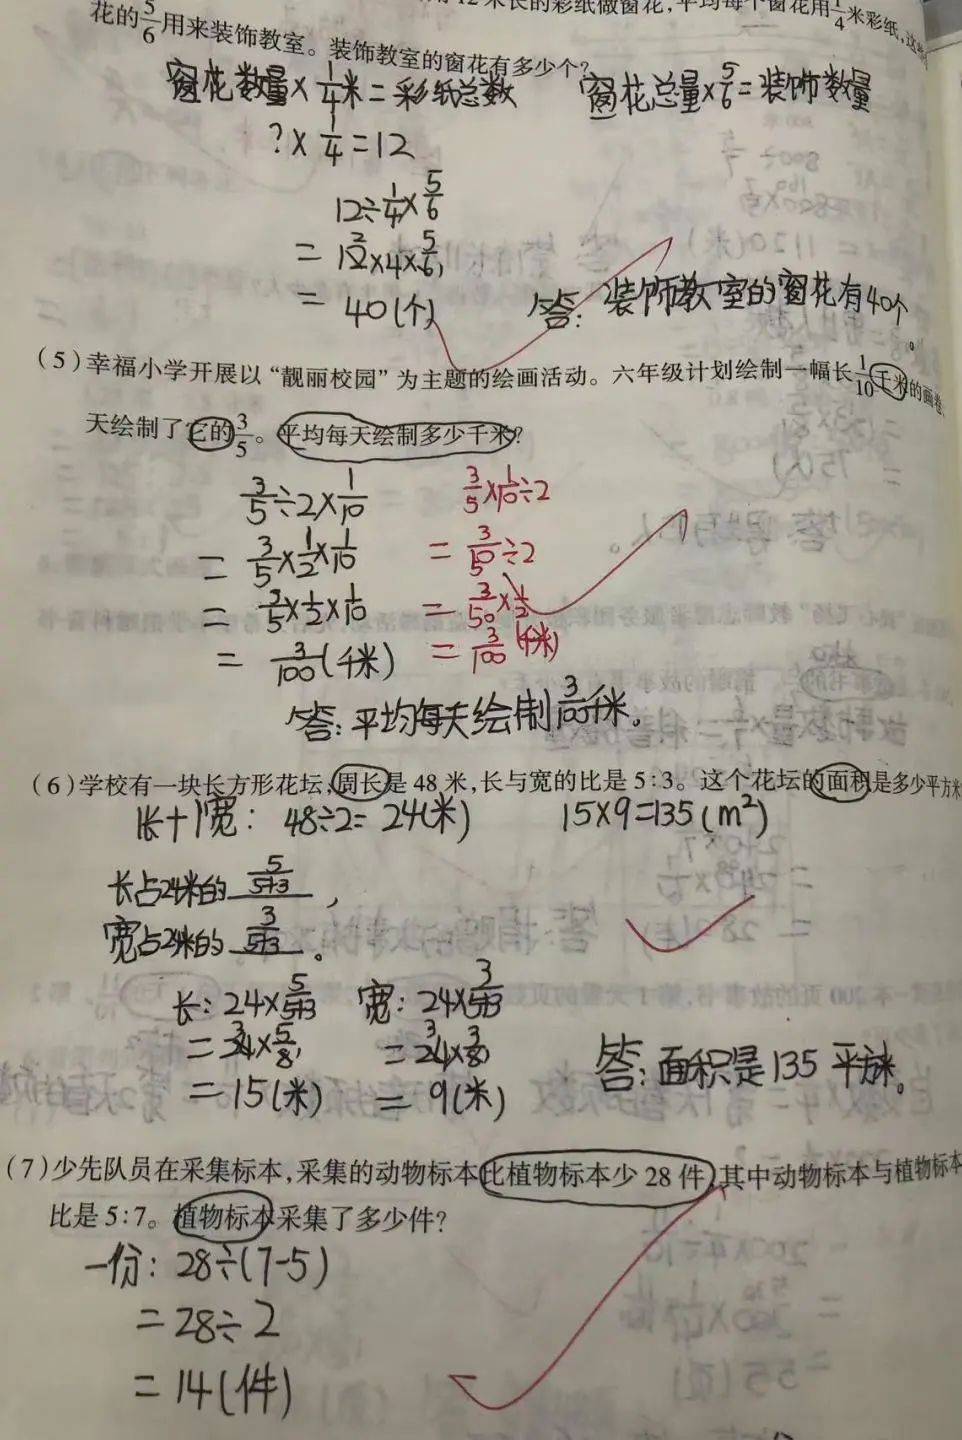 12米长的彩纸做窗花,平均每个窗花用1/4米彩纸,这些
花的5/6用来装饰教室。装饰教室的窗花有多少个?
窗花数量×1/4米=彩纸总数 窗花总量×5/6=装饰数量
?×1/4=12
12÷1/4×5/6
=12×4×5/6
=40(个)
答:装饰教室的窗花有40个。
(5)幸福小学开展以“靓丽校园”为主题的绘画活动。六年级计划绘制一幅长1/10千米的画卷,
天绘制了它的3/5。平均每天绘制多少千米?
3/5÷2×1/10 3/5×1/10÷2
=3/5×1/2×1/10 =3/50÷2
=3/5×1/2×1/10 =3/50×1/2
=3/100(千米) =3/100(千米)
答:平均每天绘制3/100千米。
(6)学校有一块长方形花坛,周长是48米,长与宽的比是5:3。这个花坛的面积是多少平方米
1长+1宽:48÷2=24(米) 15×9=135(m²)
长占24米的5/5+3,
宽占24米的3/5+3。
长:24×5/5+3 宽:24×3/5+3
=24×5/8 =24×3/8
=15(米) =9(米)
答:面积是135平方米。
(7)少先队员在采集标本,采集的动物标本比植物标本少28件,其中动物标本与植物标本
比是5:7。植物标本采集了多少件?
一份:28÷(7-5)
=28÷2
=14(件)